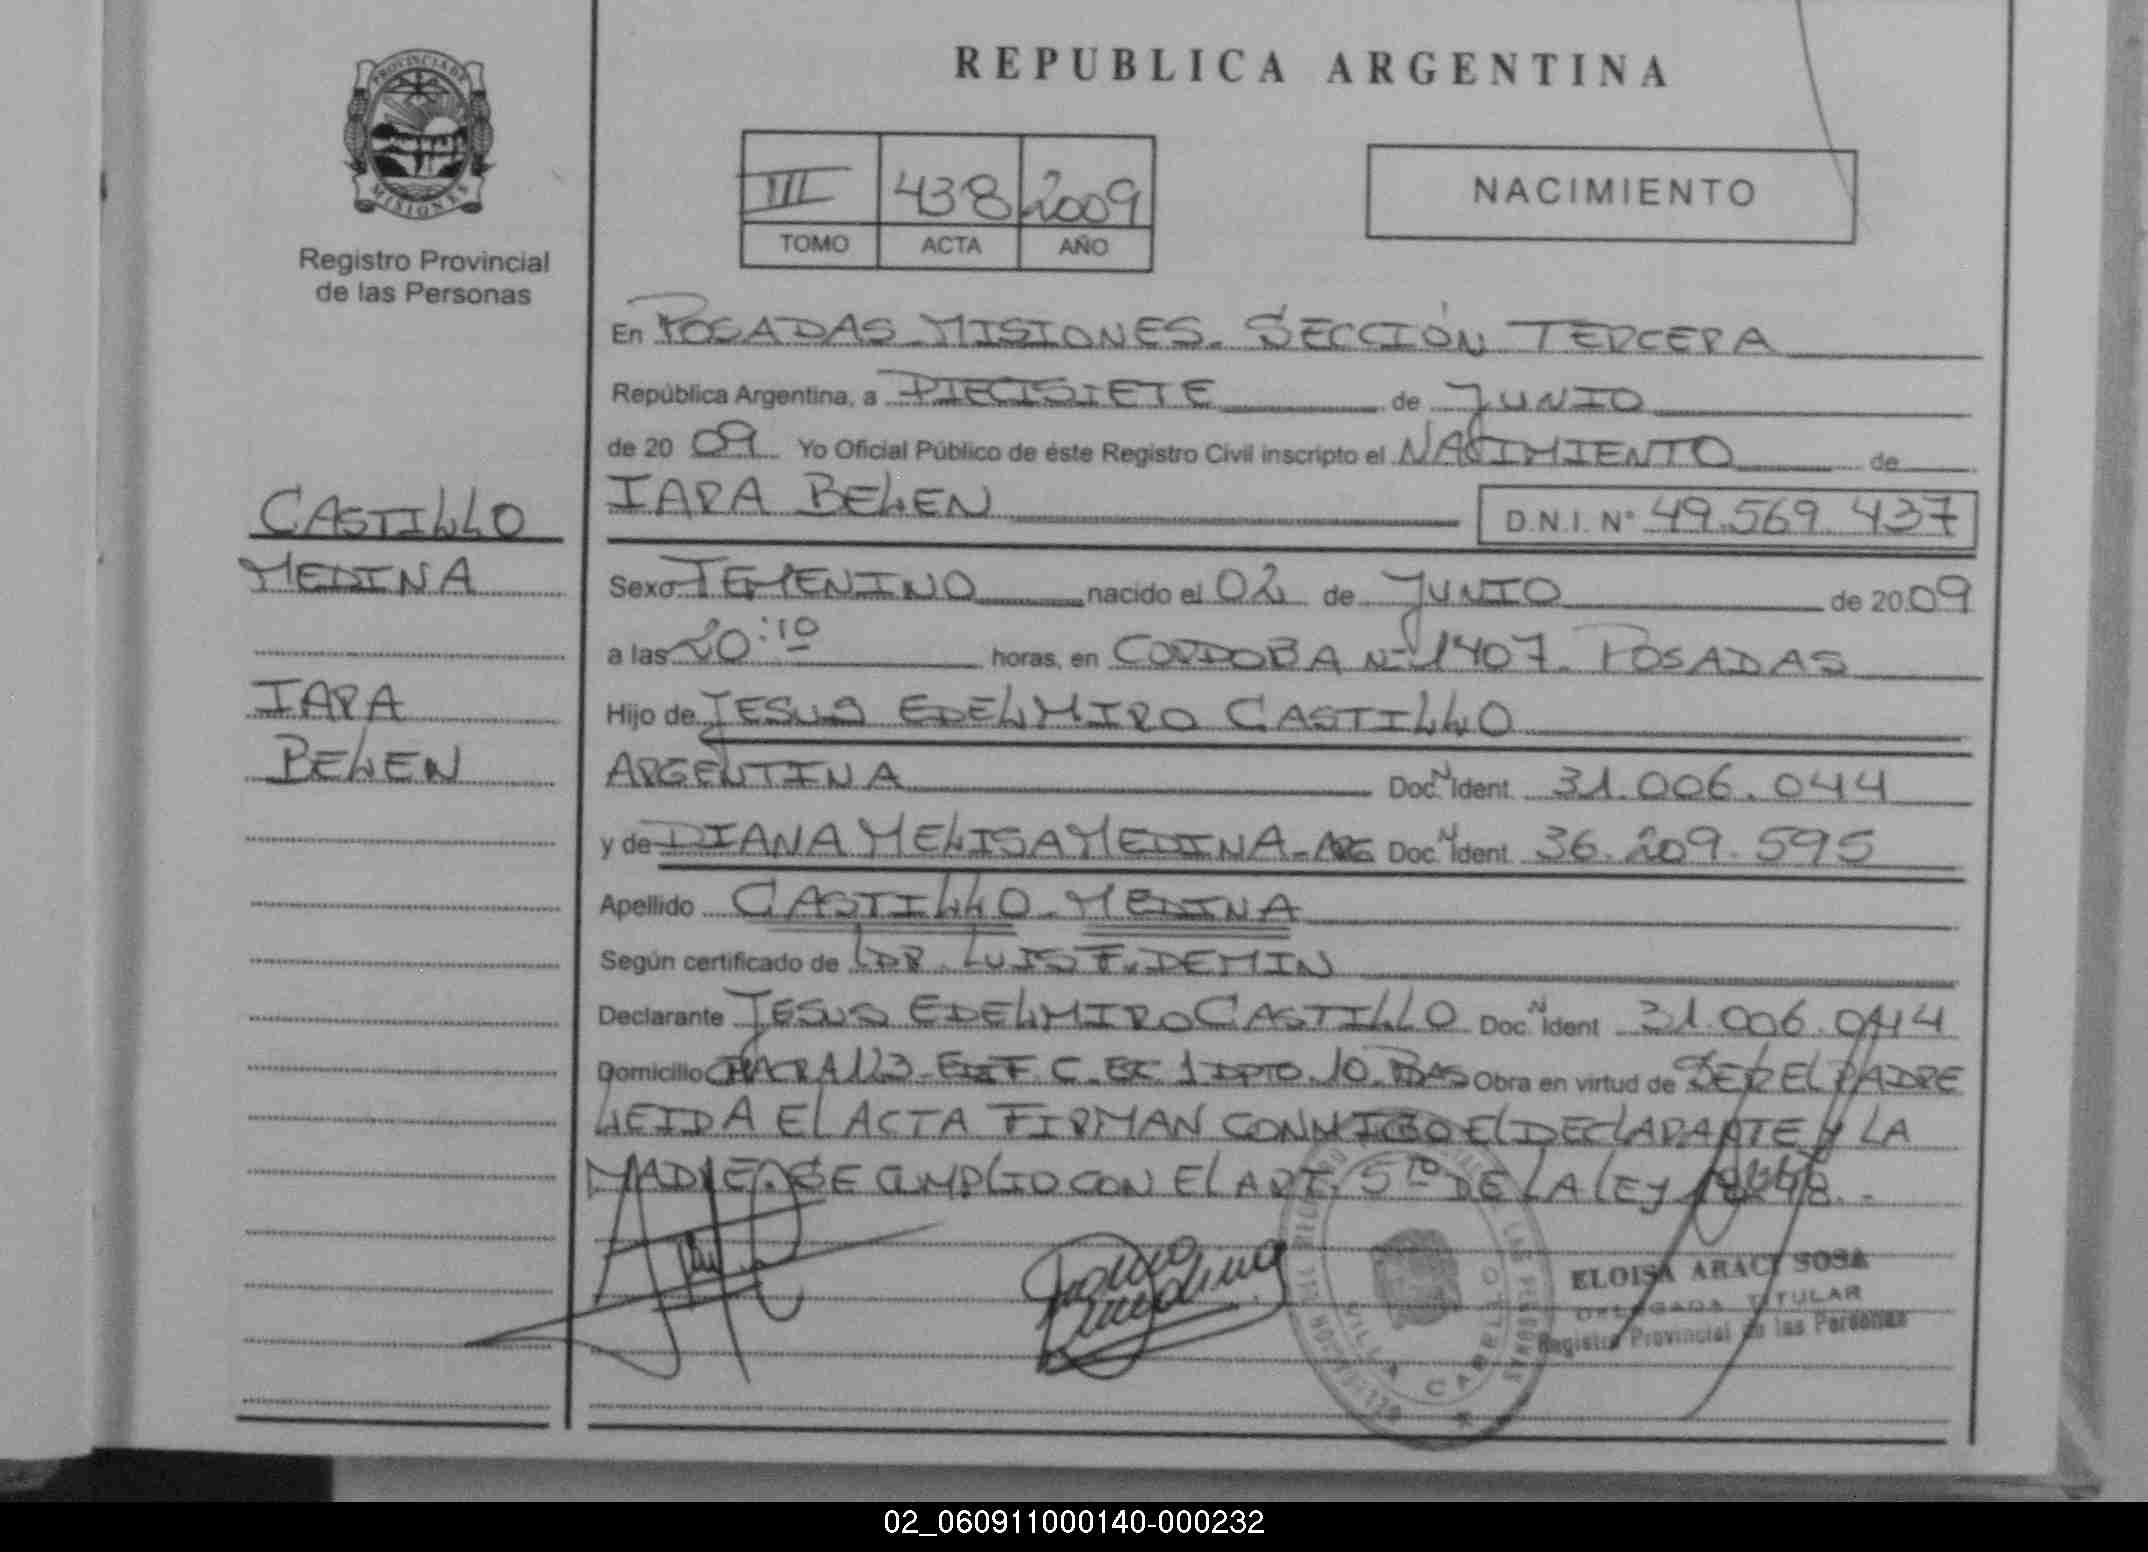 PROVINCIA DE
MISIONES
Registro Provincial
de las Personas
CASTILLO
MEDINA
IARA
BELEN
REPUBLICA ARGENTINA
III 438 2009
TOMO ACTA AÑO
NACIMIENTO
En POSADAS - MISIONES. SECCIÓN TERCERA
República Argentina, a DIECISIETE de JUNIO
de 20 09 Yo Oficial Público de éste Registro Civil inscripto el NACIMIENTO de
IARA BELEN D.N.I. N° 49.569.437
Sexo FEMENINO nacido el 02 de JUNIO de 20 09
a las 20:10 horas, en CORDOBA N° 1407. POSADAS
Hijo de JESUS EDELMIRO CASTILLO
ARGENTINA Doc. N Ident. 31.006.044
y de DIANA MELISA MEDINA - ARG Doc. N Ident. 36.209.595
Apellido CASTILLO - MEDINA
Según certificado de DR. LUIS F. DEMIN
Declarante JESUS EDELMIRO CASTILLO Doc. N Ident 31.006.044
Domicilio CHACRA 123 - EDIF C. ESC 1 DPTO. 10. PDAS Obra en virtud de SER EL PADRE
LEIDA EL ACTA FIRMAN CONMIGO EL DECLARANTE Y LA
MADRE. SE CUMPLIO CON EL ART. 5TO DE LA LEY
Medina
VILLA CABELLO
ELOISA ARACI SOSA
DELEGADA TITULAR
Registro Provincial de las Personas
02_060911000140-000232